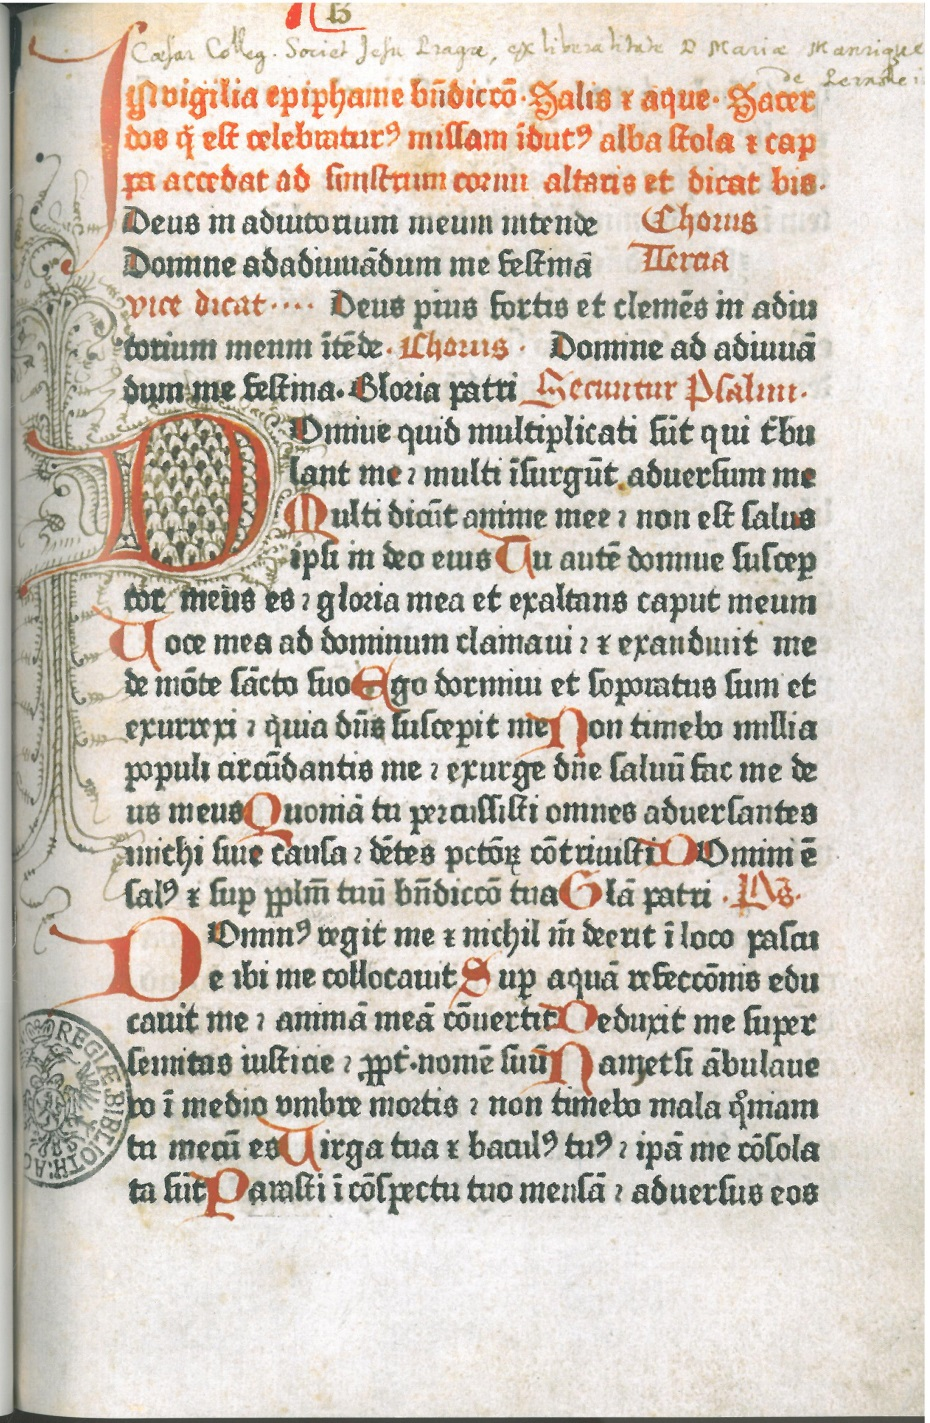 13
Cæsar Colleg. Societ Jesu Pragæ, ex liberalitate D Mariæ Manrique
de Pernstei
In vigilia epiphanie bn̄diccō · Salis ⁊ aque · Sacer
dos q̄ est celebraturꝰ missam īdutꝰ alba stola ⁊ cap
pa accedat ad sinistrum cornu altaris et dicat bis·
Deus in adiutorium meum intende Chorus
Domine ad adiuuādum me festinā Tercia
vice dicat···· Deus pius fortis et clemēs in adiu
torium meum ītēde· Chorus · Domine ad adiuuā
dum me festina. Gloria patri Secuntur Psalmi·
Domine quid multiplicati sūt qui t͛bu
lant me ⁊ multi īsurgūt aduersum me
Multi dicūt anime mee ⁊ non est salus
ipsi in deo eius Tu autē domine suscep
tor meus es ⁊ gloria mea et exaltans caput meum
Uoce mea ad dominum clamaui ⁊ ⁊ exaudiuit me
de mōte sācto suo Ego dormiui et soporatus sum et
exurrexi ⁊ quia dn̄s suscepit me Non timebo millia
populi circūdantis me ⁊ exurge dn̄e saluū fac me de
us meus Quoniā tu percussisti omnes aduersantes
michi sine causa ⁊ dētes pctōꝝ cōtriuisti Domini ē
salꝰ ⁊ sup pplm̄ tuū bn̄diccō tua Glā patri · Ps·
Dominꝰ regit me ⁊ nichil m̄ deerit ī loco pascu
e ibi me collocauit Sup aquā refeccōnis edu
cauit me ⁊ animā meā cōuertit Deduxit me super
semitas iusticie ⁊ ꝓpt̄· nomē suū Nam etsi ābulaue
ro ī medio vmbre mortis ⁊ non timebo mala qm̄iam
tu mecū es Uirga tua ⁊ baculꝰ tuꝰ ⁊ ipā me cōsola
ta sūt Parasti ī cōspectu tuo mensā ⁊ aduersus eos
REGIÆ BIBLIOTH: AC